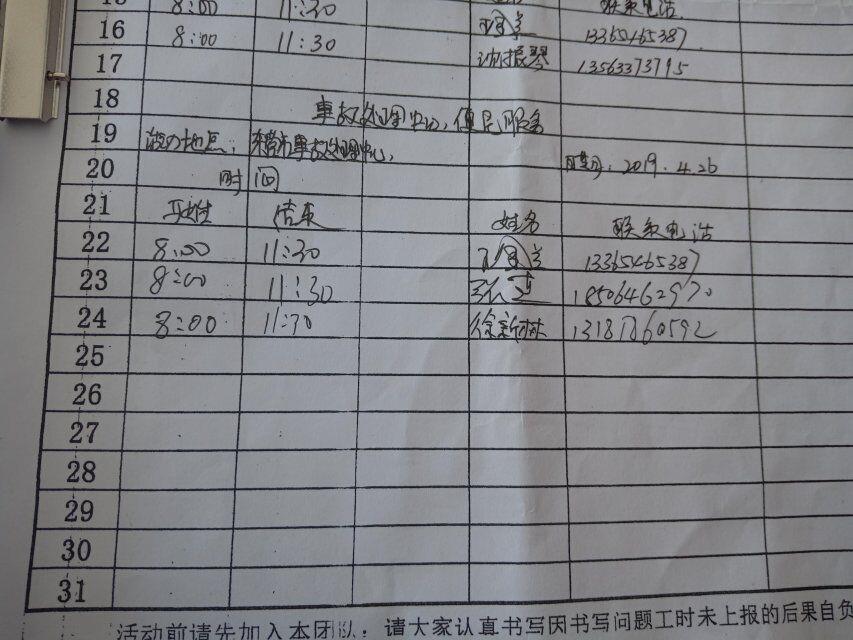 15 8:00 11:30 联系电话
16 8:00 11:30 13365465387
17 振琴 13563373795
18 事故处理中心,便民服务
19 活动地点:东营市事故处理中心,
20 时间 日期:2019.4.26
21 开始 结束 姓名 联系电话
22 8:00 11:30 13365465387
23 8:00 11:30 18506462970
24 8:00 11:30 徐新林 13181860592
25
26
27
28
29
30
31
活动前请先加入本团队,请大家认真书写因书写问题工时未上报的后果自负